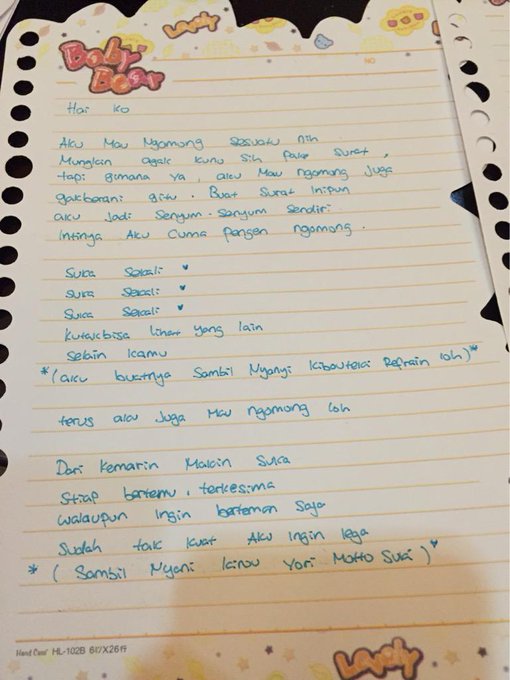 Lovely
Baby
Bear
NO
Hai Ko
Aku Mau Ngomong sesuatu nih
Mungkin agak kuno sih pake surat,
tapi gimana ya, aku Mau ngomong juga
gakberani gitu. Buat Surat inipun
aku Jadi Senyum-Senyum Sendiri
Intinya Aku Cuma pengen ngomong.
Suka Sekali ♥
Suka Sekali ♥
Suka Sekali ♥
Kutakbisa lihat yang lain
Selain Kamu
*(aku buatnya Sambil Nyanyi Kibouteki Refrain loh)*
terus aku Juga Mau ngomong loh
Dari Kemarin Makin Suka
Stiap bertemu, terkesima
walaupun Ingin berteman Saja
Sudah tak kuat Aku Ingin lega
* ( Sambil Nyani Kinou Yori Motto Suki )♥
Hand Case HL-102B 617X26行
Lovely